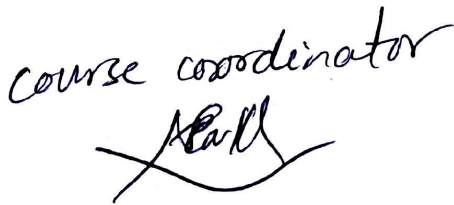 course cooordinator